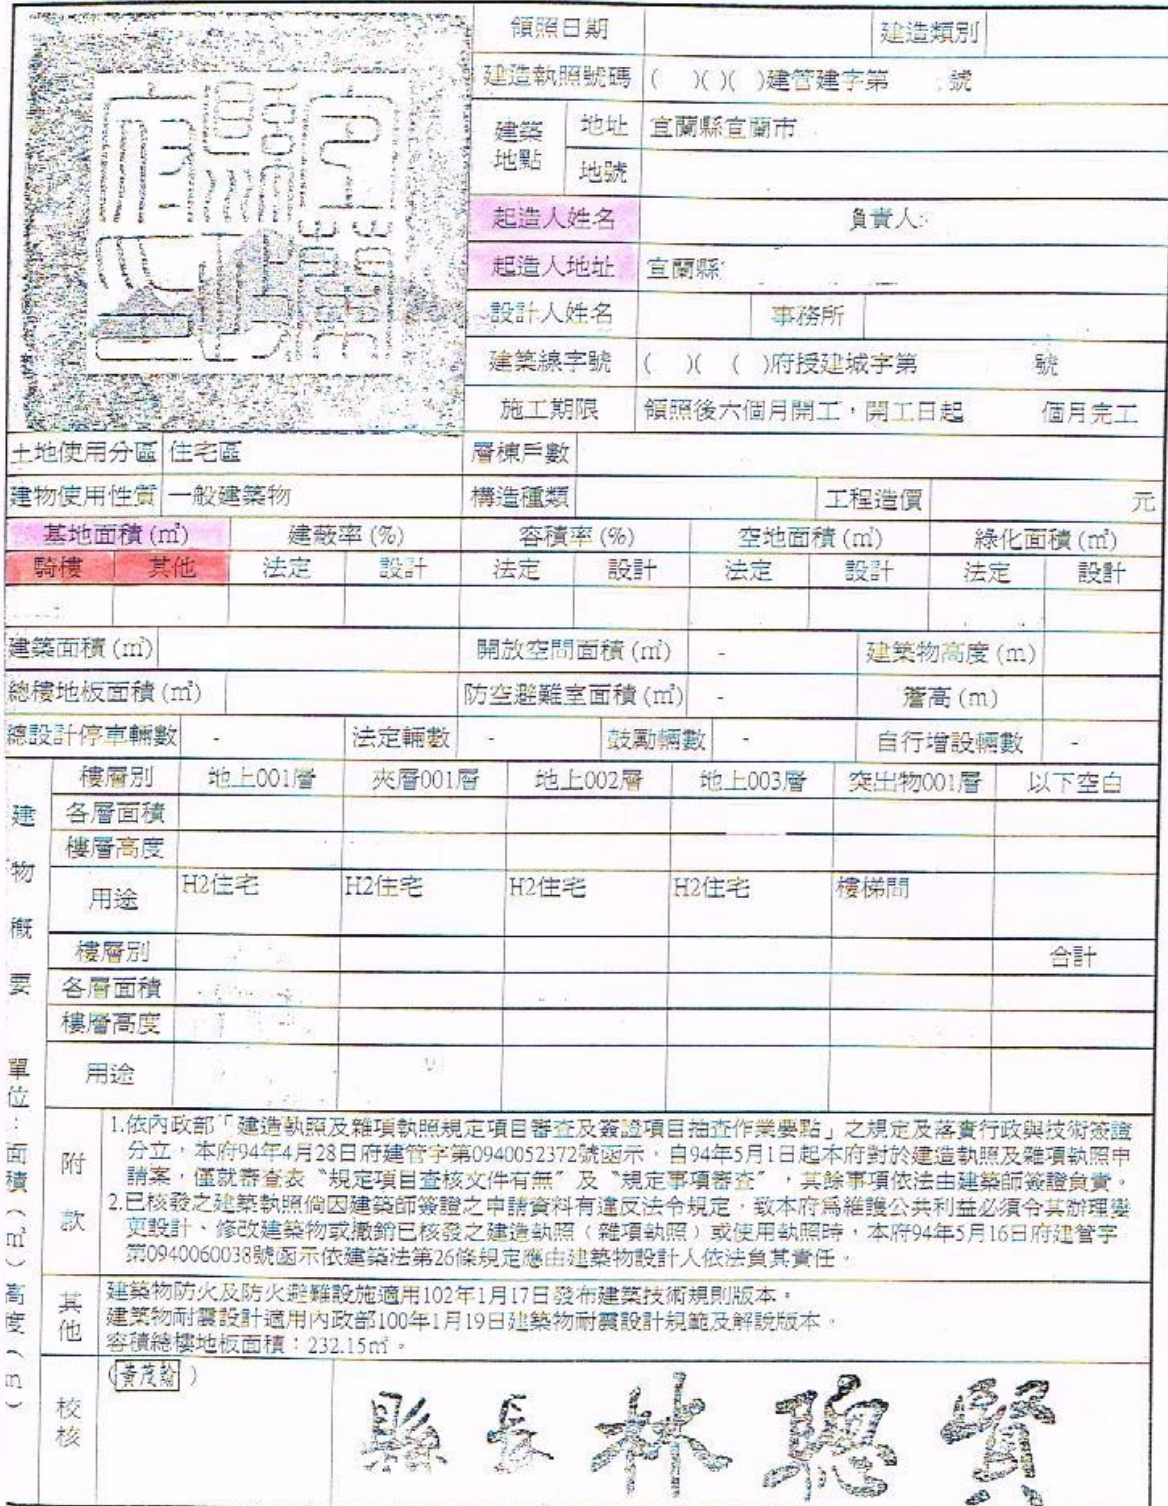 宜蘭縣政府之印
領照日期 建造類別
建造執照號碼 ( )( )( )建管建字第 號
建築地點 地址 宜蘭縣宜蘭市
地號
起造人姓名 負責人:
起造人地址 宜蘭縣
設計人姓名 事務所
建築線字號 ( )( ( )府授建城字第 號
施工期限 領照後六個月開工，開工日起 個月完工
土地使用分區 住宅區 層棟戶數
建物使用性質 一般建築物 構造種類 工程造價 元
基地面積(㎡) 建蔽率(%) 容積率(%) 空地面積(㎡) 綠化面積(㎡)
騎樓 其他 法定 設計 法定 設計 法定 設計 法定 設計
建築面積(㎡) 開放空間面積(㎡) - 建築物高度(m)
總樓地板面積(㎡) 防空避難室面積(㎡) - 簷高(m)
總設計停車輛數 - 法定輛數 - 鼓勵輛數 - 自行增設輛數 -
建物概要 單位：面積(㎡)高度(m)
樓層別 地上001層 夾層001層 地上002層 地上003層 突出物001層 以下空白
各層面積
樓層高度
用途 H2住宅 H2住宅 H2住宅 H2住宅 樓梯間
樓層別 合計
各層面積
樓層高度
用途
附款
1.依內政部「建造執照及雜項執照規定項目審查及簽證項目抽查作業要點」之規定及落實行政與技術簽證
分立，本府94年4月28日府建管字第0940052372號函示，自94年5月1日起本府對於建造執照及雜項執照申
請案，僅就審查表〝規定項目查核文件有無〞及〝規定事項審查〞，其餘事項依法由建築師簽證負責。
2.已核發之建築執照倘因建築師簽證之申請資料有違反法令規定，致本府為維護公共利益必須令其辦理變
更設計、修改建築物或撤銷已核發之建造執照（雜項執照）或使用執照時，本府94年5月16日府建管字
第0940060038號函示依建築法第26條規定應由建築物設計人依法負其責任。
其他
建築物防火及防火避難設施適用102年1月17日發布建築技術規則版本。
建築物耐震設計適用內政部100年1月19日建築物耐震設計規範及解說版本。
容積總樓地板面積：232.15㎡。
校核
(黃茂翰)
縣長林聰賢